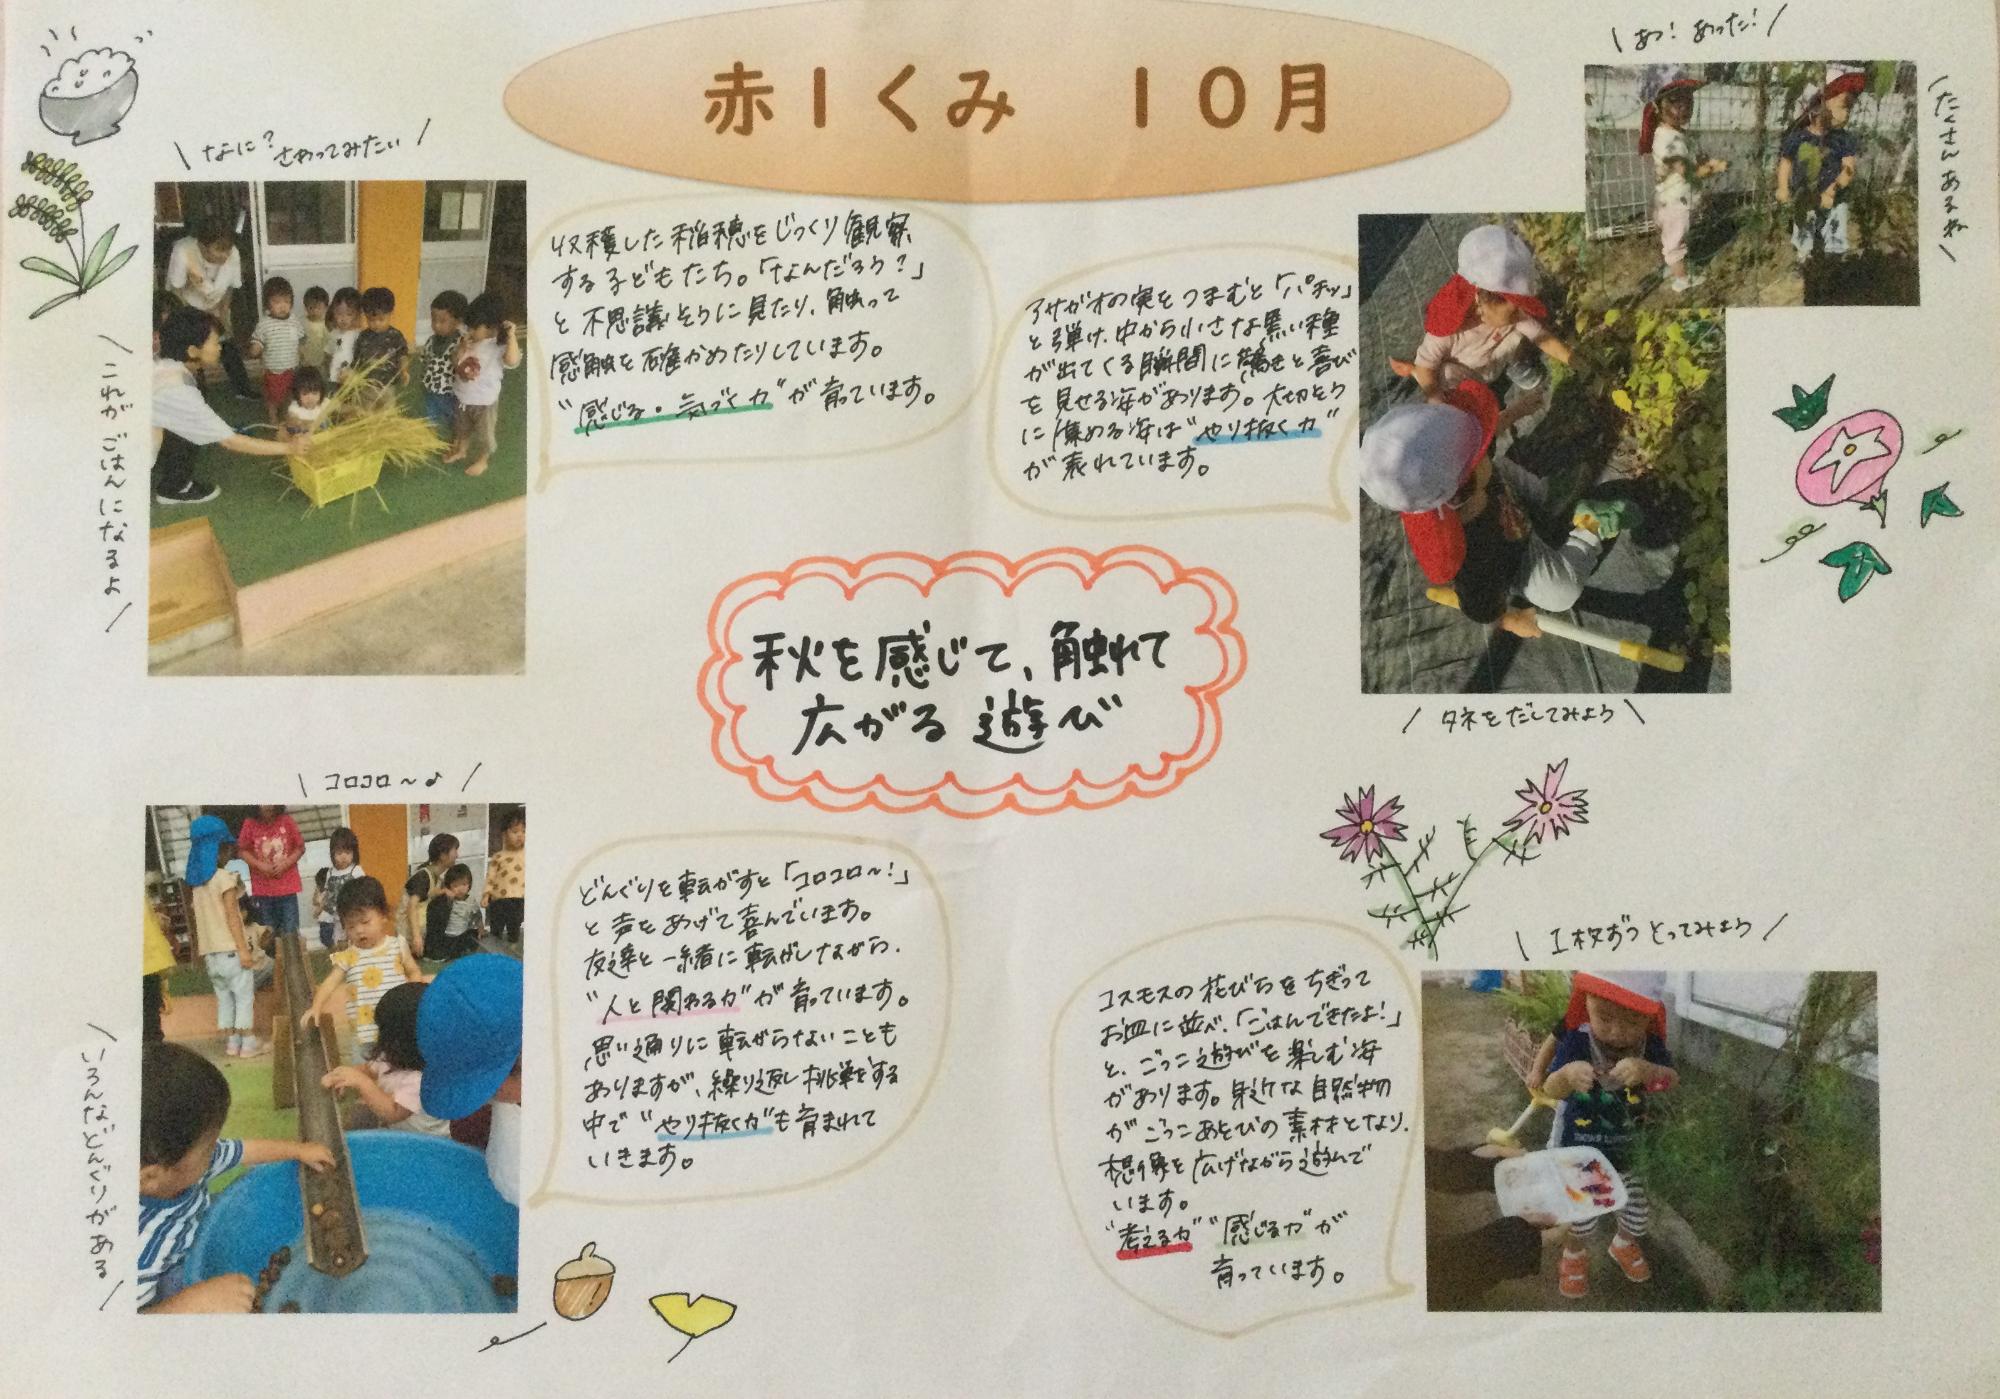 赤1くみ 10月
\ なに? さわってみたい /
\ これが ごはんになるよ /
収穫した稲穂をじっくり観察
する子どもたち。「なんだろう?」
と不思議そうに見たり、触って
感触を確かめたりしています。
"感じる・気づく力"が育っています。
\ あ! あった! /
\ たくさんあるね /
アサガオの実をつまむと「パチッ」
と弾け、中から小さな黒い種
が出てくる瞬間に驚きと喜び
を見せる姿があります。大切そう
に集める姿は"やり抜く力"
が表れています。
/ タネをだしてみよう \
秋を感じて、触れて
広がる遊び
\ コロコロ〜♪ /
\ いろんなどんぐりがある /
どんぐりを転がすと「コロコロ〜!」
と声をあげて喜んでいます。
友達と一緒に転がしながら、
"人と関わる力"が育っています。
思い通りに転がらないことも
ありますが、繰り返し挑戦をする
中で"やり抜く力"も育まれて
いきます。
\ 1枚ずつとってみよう /
コスモスの花びらをちぎって
お皿に並べ、「ごはんできたよ!」
と、ごっこ遊びを楽しむ姿
があります。身近な自然物
がごっこあそびの素材となり、
想像を広げながら遊んで
います。
"考える力""感じる力"が
育っています。